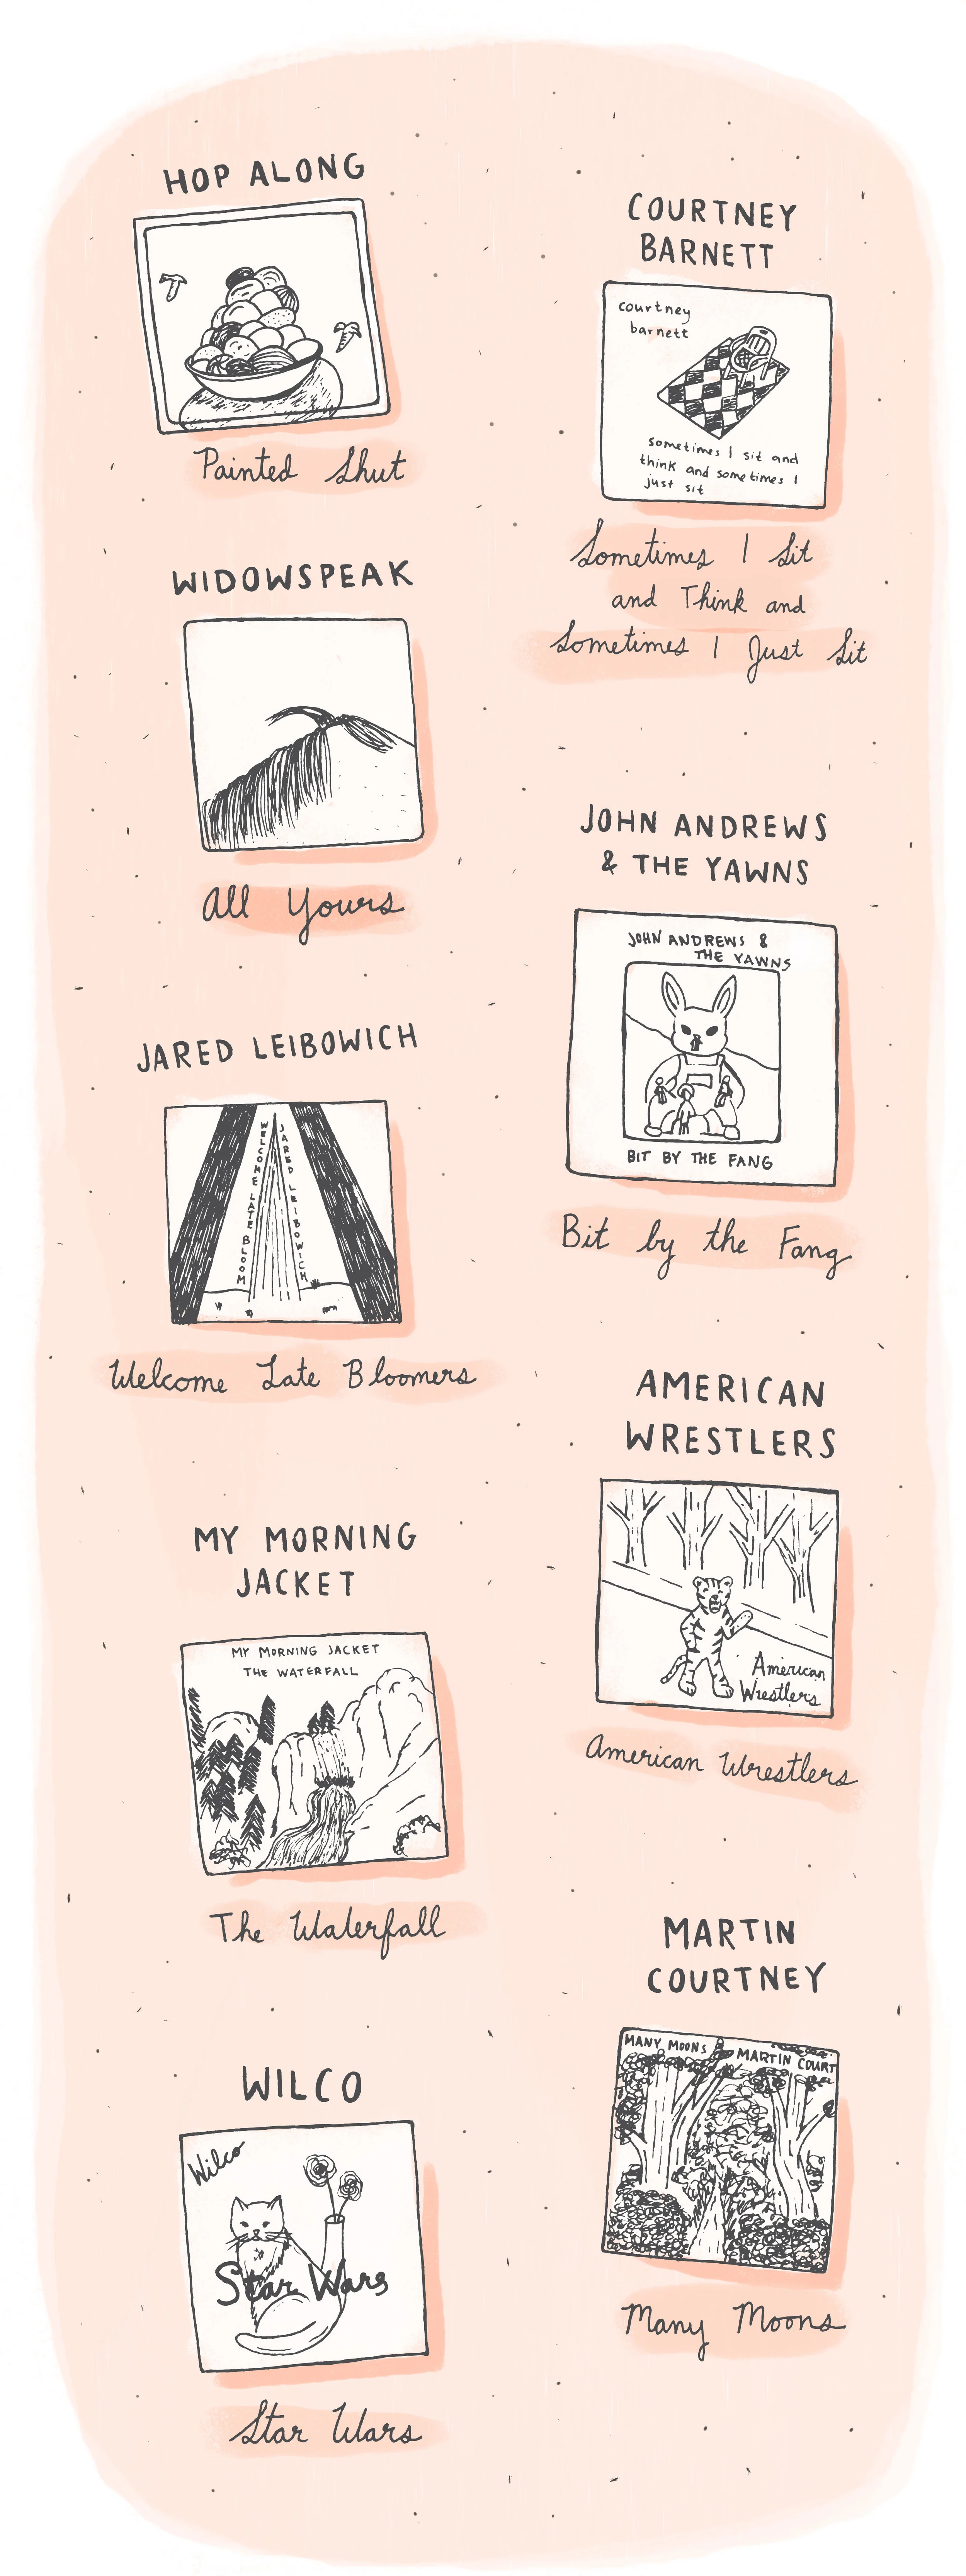 HOP ALONG
Painted Shut
COURTNEY
BARNETT
courtney
barnett
sometimes I sit and
think and sometimes I
just sit
Sometimes I Sit
and Think and
Sometimes I Just Sit
WIDOWSPEAK
All Yours
JOHN ANDREWS
& THE YAWNS
JOHN ANDREWS &
THE YAWNS
BIT BY THE FANG
Bit by the Fang
JARED LEIBOWICH
WELCOME LATE BLOOM
JARED LEIBOWICH
Welcome Late Bloomers
AMERICAN
WRESTLERS
American
Wrestlers
American Wrestlers
MY MORNING
JACKET
MY MORNING JACKET
THE WATERFALL
The Waterfall
MARTIN
COURTNEY
MANY MOONS MARTIN COURT
Many Moons
WILCO
Wilco
Star Wars
Star Wars